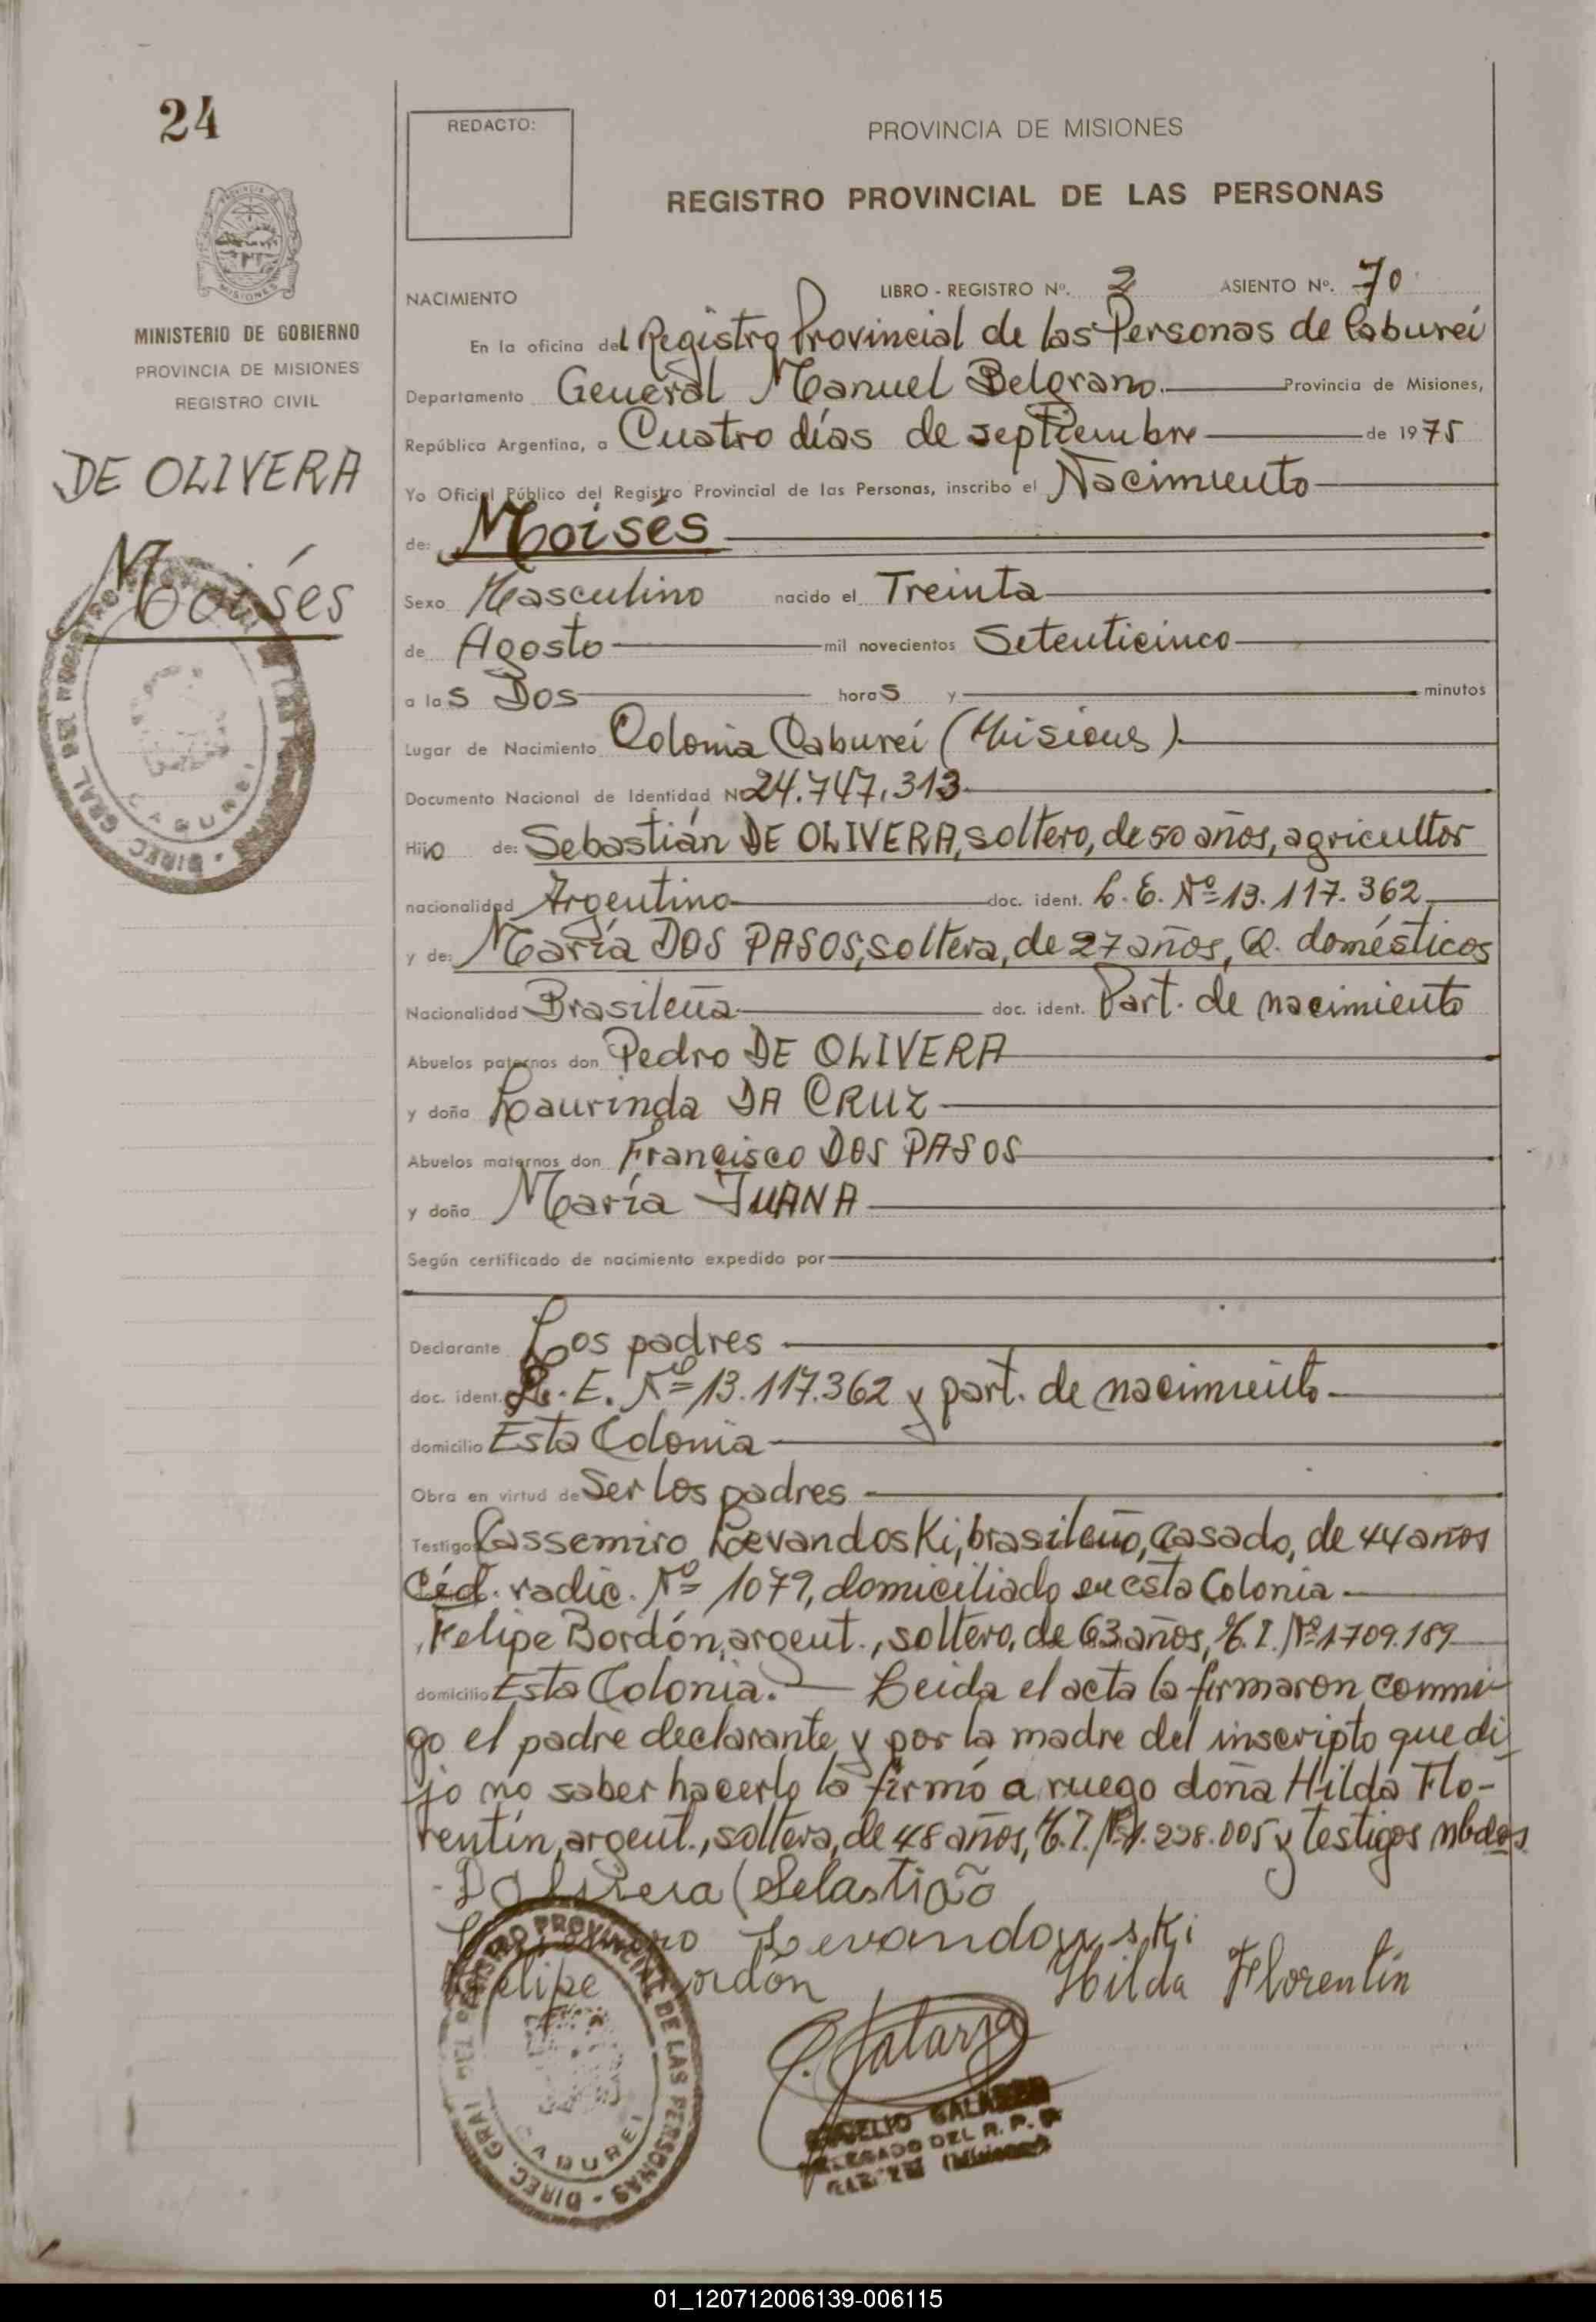 24
REDACTO:
PROVINCIA DE MISIONES
REGISTRO PROVINCIAL DE LAS PERSONAS
PROVINCIA
MISIONES
MINISTERIO DE GOBIERNO
PROVINCIA DE MISIONES
REGISTRO CIVIL
DE OLIVERA
Moisés
NACIMIENTO LIBRO - REGISTRO Nº. 2 ASIENTO Nº. 70
En la oficina del Registro Provincial de las Personas de Caburei
Departamento General Manuel Belgrano. Provincia de Misiones,
República Argentina, a Cuatro días de septiembre de 1975
Yo Oficial Público del Registro Provincial de las Personas, inscribo el Nacimiento
de: Moisés
Sexo Masculino nacido el Treinta
de Agosto mil novecientos Setenticinco
a las Dos horas y minutos
Lugar de Nacimiento Colonia Caburei (Misiones)
Documento Nacional de Identidad Nº 24.747.313
Hijo de: Sebastián DE OLIVERA, soltero, de 50 años, agricultor
nacionalidad Argentino doc. ident. L.E. Nº 13.117.362
y de: María DOS PASOS, soltera, de 27 años, Q. domésticos
Nacionalidad Brasileña doc. ident. Part. de nacimiento
Abuelos paternos don Pedro DE OLIVERA
y doña Laurinda DA CRUZ
Abuelos maternos don Francisco DOS PASOS
y doña María JUANA
Según certificado de nacimiento expedido por
Declarante Los padres
doc. ident. L.E. Nº 13.117.362 y part. de nacimiento
domicilio Esta Colonia
Obra en virtud de Ser los padres
Testigos Cassemiro Levandoski, brasileño, casado, de 44 años
Céd. radic. Nº 1079, domiciliado en esta Colonia
Felipe Bordón, argent., soltero, de 63 años, M.I. Nº 1709.189
domicilio Esta Colonia. Leida el acta la firmaron conmi-
go el padre declarante y por la madre del inscripto que di
jo no saber hacerlo la firmó a ruego doña Hilda Flo-
rentín, argent., soltera, de 48 años, M.I. Nº 1.228.005 y testigos nbdos.
(Sebastião
Levandowski
Felipe Bordón Hilda Florentín
DIREC. GRAL DEL REGISTRO PROVINCIAL DE LAS PERSONAS
CABUREI
DELEGADO DEL R. P. P.
(Misiones)
01_120712006139-006115